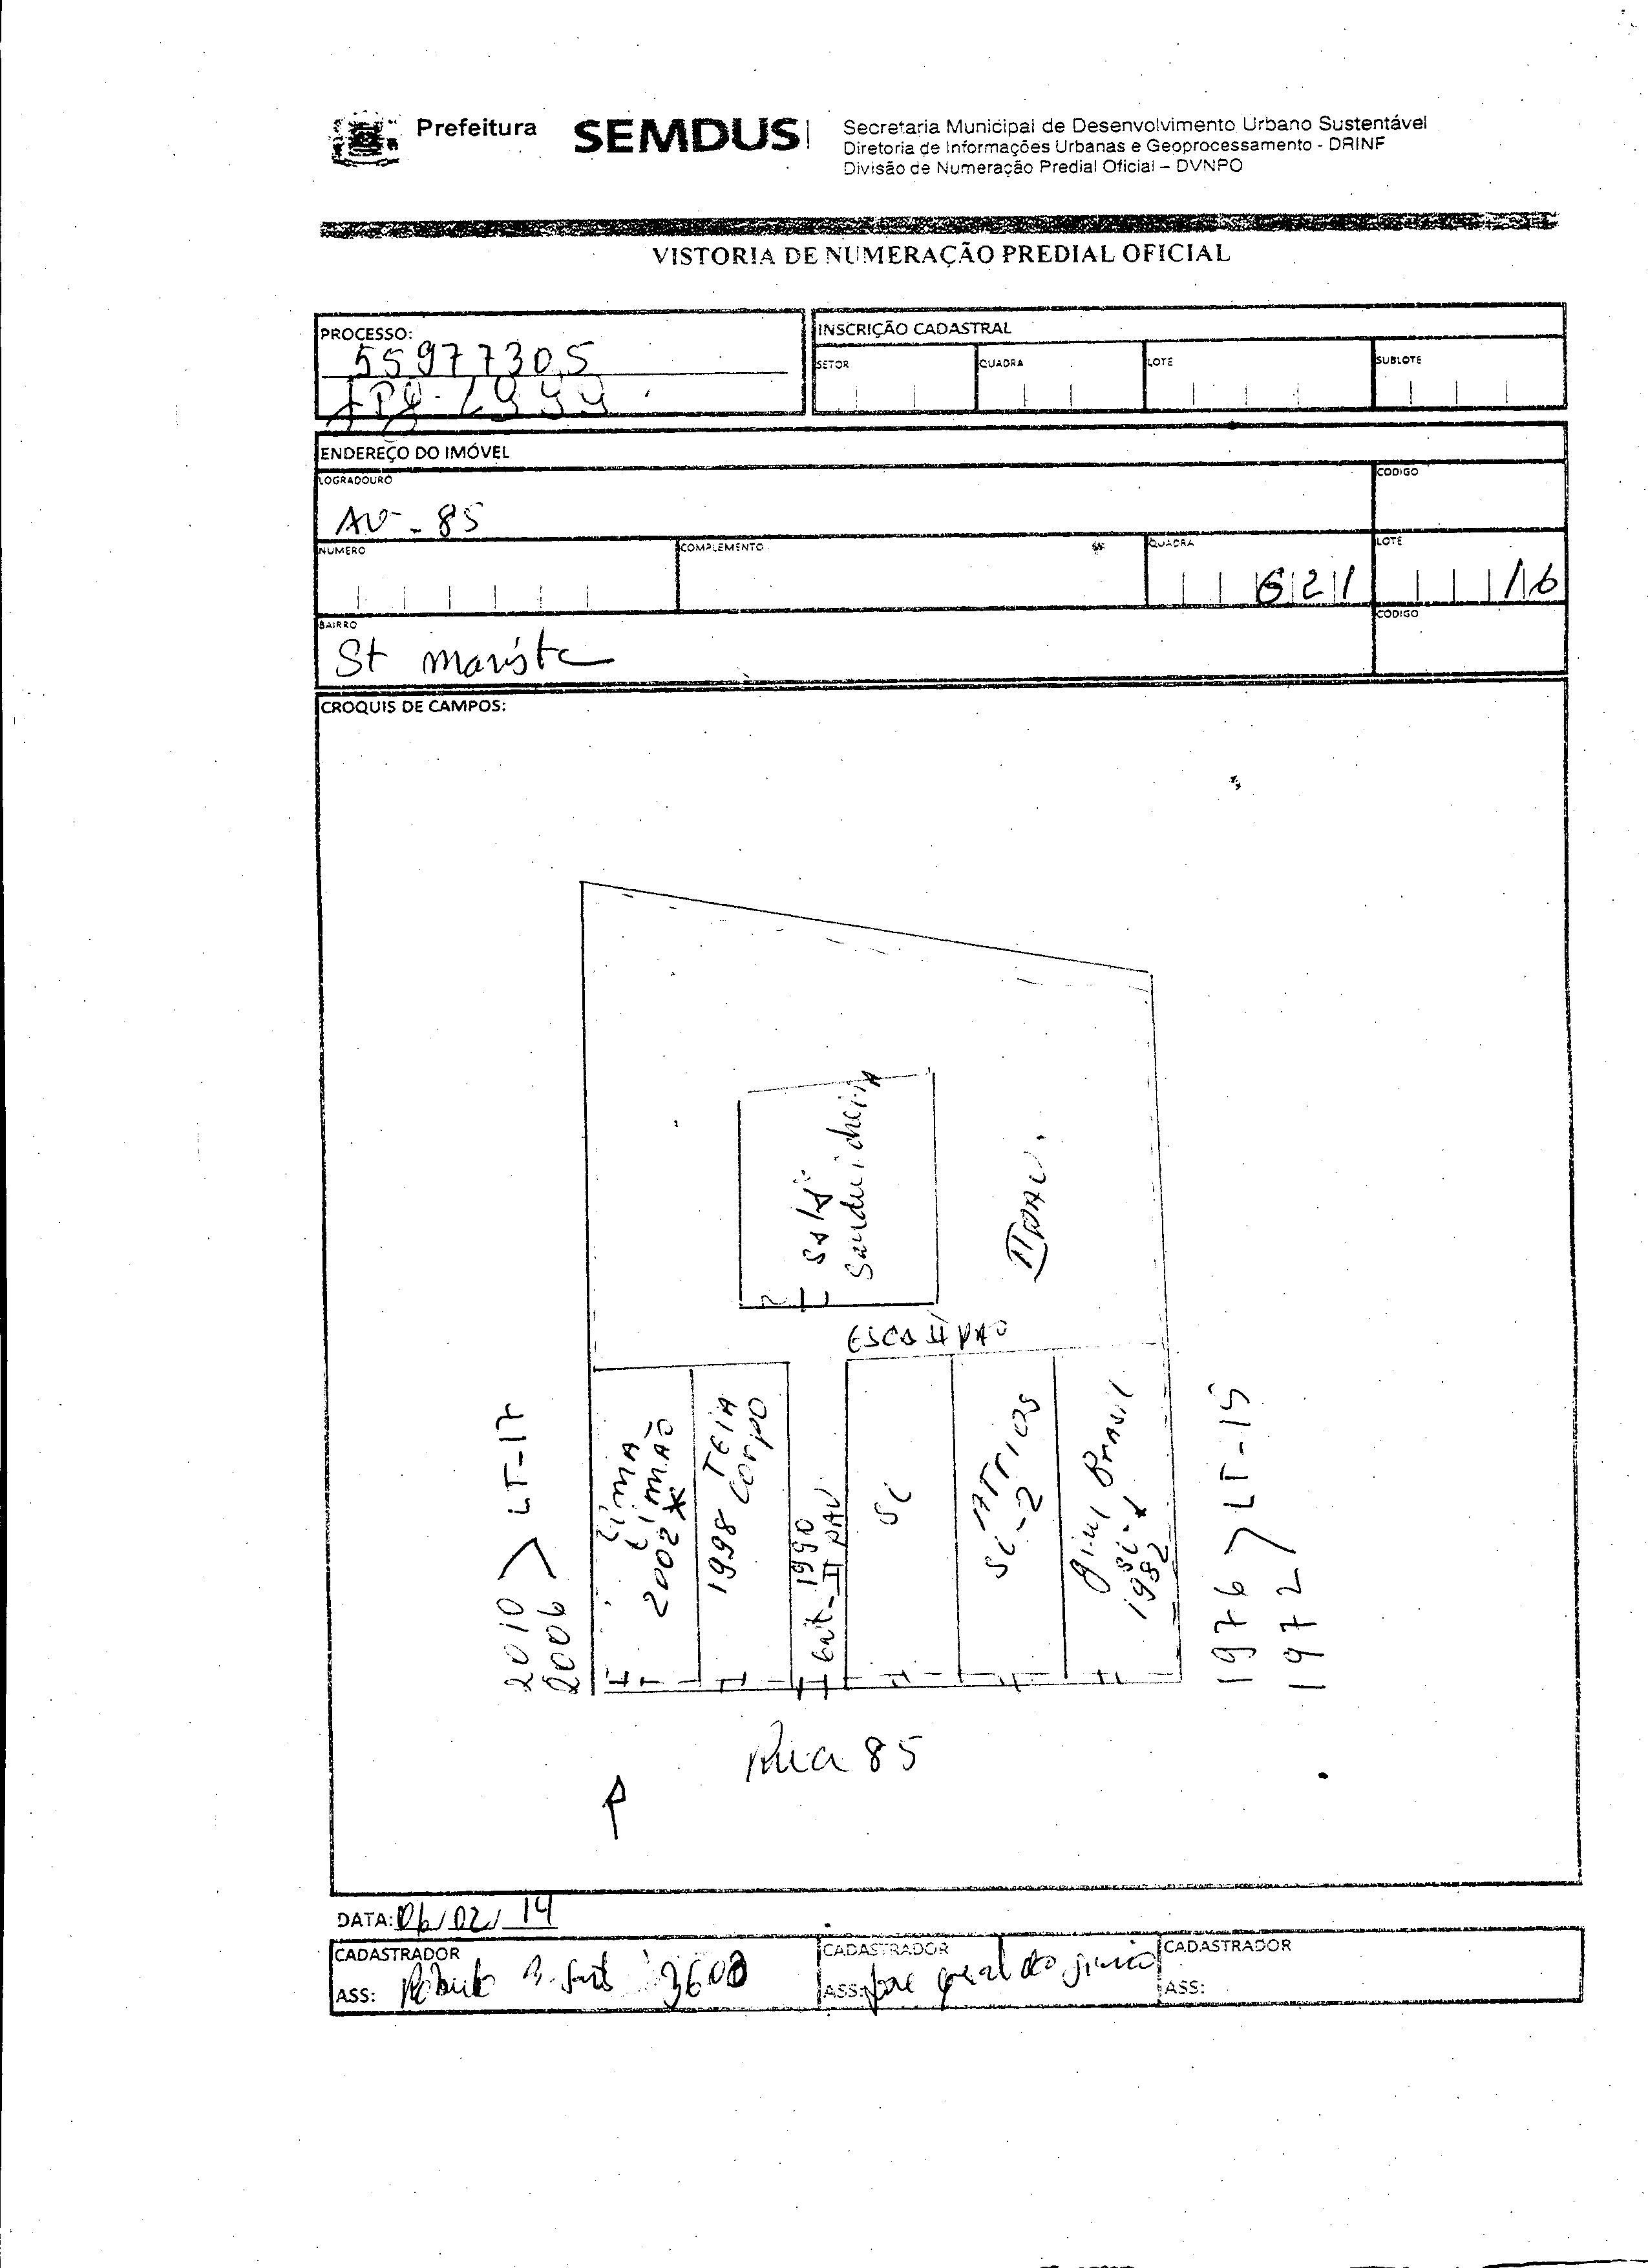 Prefeitura
SEMDUS
Secretaria Municipal de Desenvolvimento Urbano Sustentável
Diretoria de Informações Urbanas e Geoprocessamento - DRINF
Divisão de Numeração Predial Oficial – DVNPO
VISTORIA DE NUMERAÇÃO PREDIAL OFICIAL
PROCESSO:
55977305
INSCRIÇÃO CADASTRAL
SETOR
QUADRA
LOTE
SUBLOTE
ENDEREÇO DO IMÓVEL
LOGRADOURO
AV - 85
CODIGO
NUMERO
COMPLEMENTO
QUADRA
621
LOTE
16
BAIRRO
St marista
CODIGO
CROQUIS DE CAMPOS:
Sanduicheria
II PAV.
ESCA II PAV
2010 > LT-17
2006
Lima
Limão
2002 *
1998 TEIA
Corpo
1990
Ent - II PAV
SL
Atrios
SL-2
Brasil
SL-1
1982
1976 > LT-15
1972
Rua 85
DATA: 06/02/14
CADASTRADOR
ASS:
3600
CADASTRADOR
ASS:
CADASTRADOR
ASS: